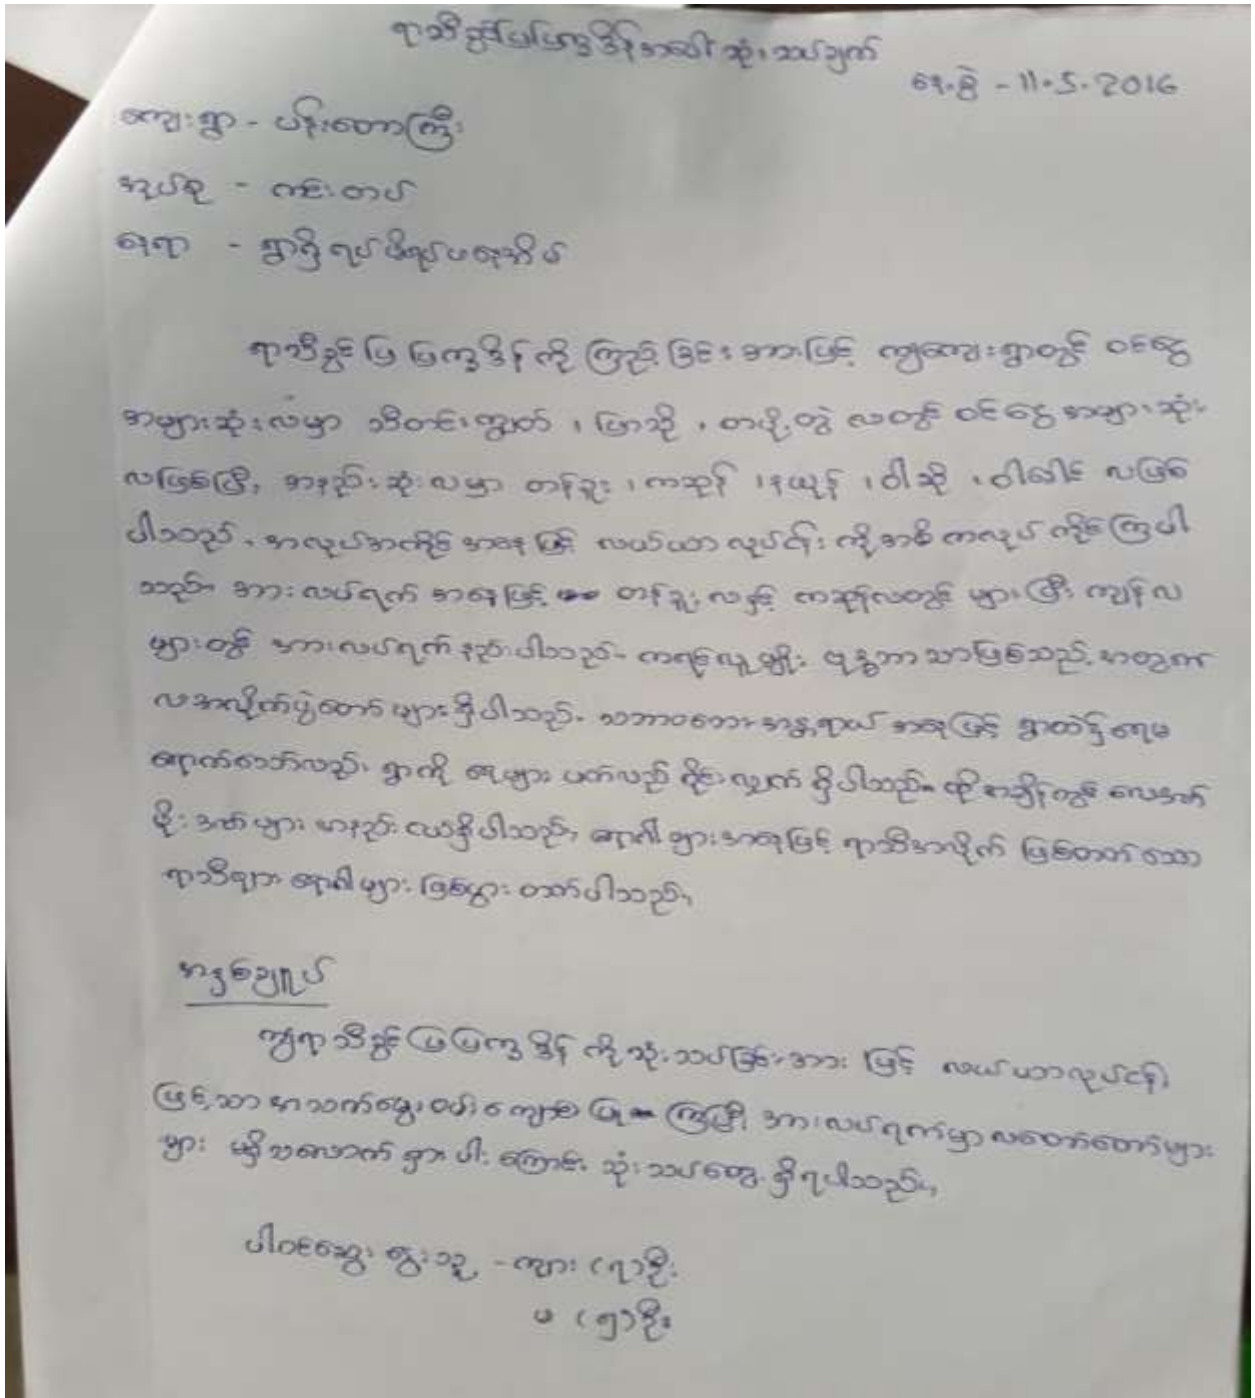 ရာသီခွင်ပြပြက္ခဒိန်အပေါ် သုံးသပ်ချက်
နေ့စွဲ - 11.5.2016
ကျေးရွာ - ပန်းတောကြီး
အုပ်စု - ကင်းတပ်
နေရာ - ရွာရှိ ရပ်မိရပ်ဖနေအိမ်
ရာသီခွင် ပြ ပြက္ခဒိန် ကို ကြည့် ခြင်း အားဖြင့် ကျွဲကျေးရွာတွင် ဝင်ငွေ
အများဆုံးလမှာ သီတင်းကျွတ် ၊ ပြာသို ၊ တပို့တွဲ လတွင် ဝင်ငွေ အများဆုံး
လဖြစ်ပြီး အနည်းဆုံးလမှာ တန်ခူး ၊ ကဆုန် ၊ နယုန် ၊ ဝါဆို ၊ ဝါခေါင် လဖြစ်
ပါသည်။ အလုပ်အကိုင် အနေဖြင့် လယ်ယာလုပ်ငန်း ကို အဓိကလုပ် ကိုင်ကြပါ
သည်။ အားလပ်ရက် အနေဖြင့် တန်ခူးလနှင့် ကဆုန်လတွင် များပြီး ကျန်လ
များတွင် အားလပ်ရက် နည်းပါသည်။ ကရင်လူမျိုး ဗုဒ္ဓဘာသာဖြစ်သည့် အတွက်
လအလိုက်ပွဲတော် များရှိပါသည်။ သဘာဝဘေးအန္တရာယ် အနေဖြင့် ရွာထဲသို့ရေမ
ရောက်သော်လည်း ရွာကို ရေများ ပတ်လည် ဝိုင်းလျှက် ရှိပါသည်။ ထိုအချိန်တွင် လေအက်
မိုးအက်များ အနည်းငယ်ရှိပါသည်။ ရောဂါများအနေဖြင့် ရာသီအလိုက် ဖြစ်တတ်သော
ရာသီတုပ် ရောဂါများ ဖြစ်ပွား တတ်ပါသည်။
အနှစ်ချုပ်
ကျွဲရာသီခွင် ပြ ပြက္ခဒိန် ကို သုံးသပ်ခြင်းအား ဖြင့် လယ်ယာလုပ်ငန်း
ဖြင့်သာ အသက်မွေးဝမ်းကျောင်း ပြု ကြပြီး အားလပ်ရက်မှာ လတော်တော်များ
များ မရှိသလောက် ရှားပါး ကြောင်း သုံးသပ်တွေ့ရှိရပါသည်။
ပါဝင်ဆွေးနွေးသူ - ကျား (၇)ဦး
မ (၅)ဦး